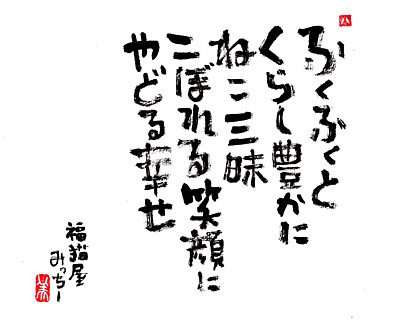 ふくふくと
くらし豊かに
ねこ三昧
こぼれる笑顔に
やどる幸せ
福猫屋
みっちー